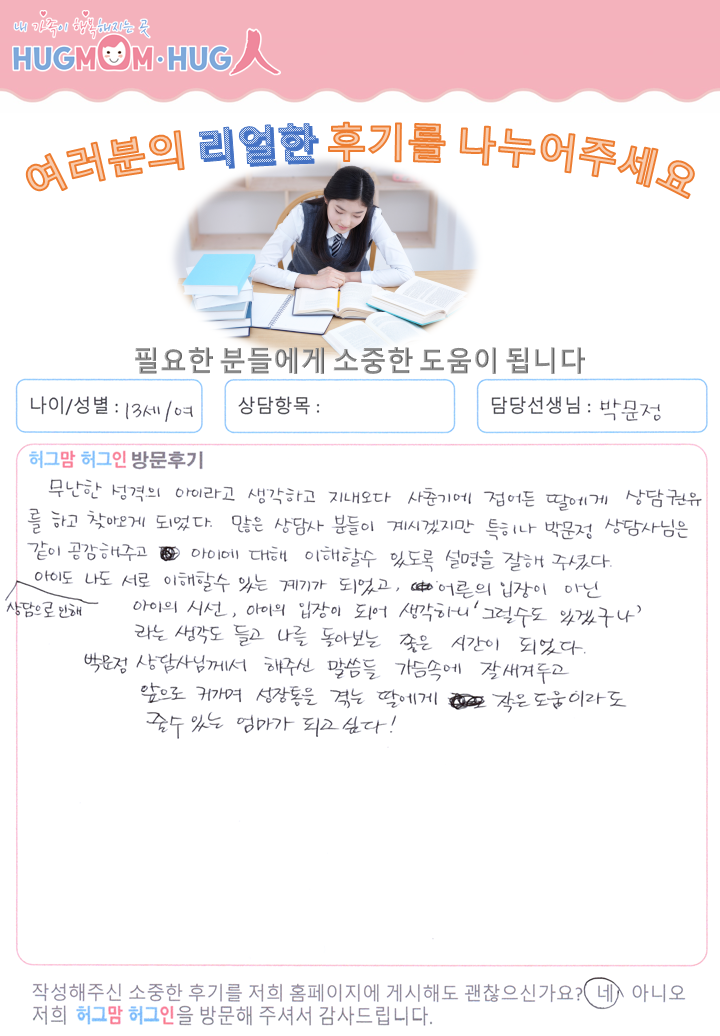 내 가족이 행복해지는 곳
HUGMOM·HUG人
여러분의 리얼한 후기를 나누어주세요
필요한 분들에게 소중한 도움이 됩니다
나이/성별 : 13세/여
상담항목 :
담당선생님 : 박문정
허그맘 허그인 방문후기
무난한 성격의 아이라고 생각하고 지내오다 사춘기에 접어든 딸에게 상담권유
를 하고 찾아오게 되었다. 많은 상담사 분들이 계시겠지만 특히나 박문정 상담사님은
같이 공감해주고 아이에 대해 이해할수 있도록 설명을 잘해 주셨다.
아이도 나도 서로 이해할수 있는 계기가 되었고, 어른의 입장이 아닌
상담으로 인해
아이의 시선, 아이의 입장이 되어 생각하니 '그럴수도 있겠구나'
라는 생각도 들고 나를 돌아보는 좋은 시간이 되었다.
박문정 상담사님께서 해주신 말씀들 가슴속에 잘새겨두고
앞으로 커가며 성장통을 겪는 딸에게 작은도움이라도
줄수 있는 엄마가 되고싶다!
작성해주신 소중한 후기를 저희 홈페이지에 게시해도 괜찮으신가요? 네 아니오
저희 허그맘 허그인을 방문해 주셔서 감사드립니다.